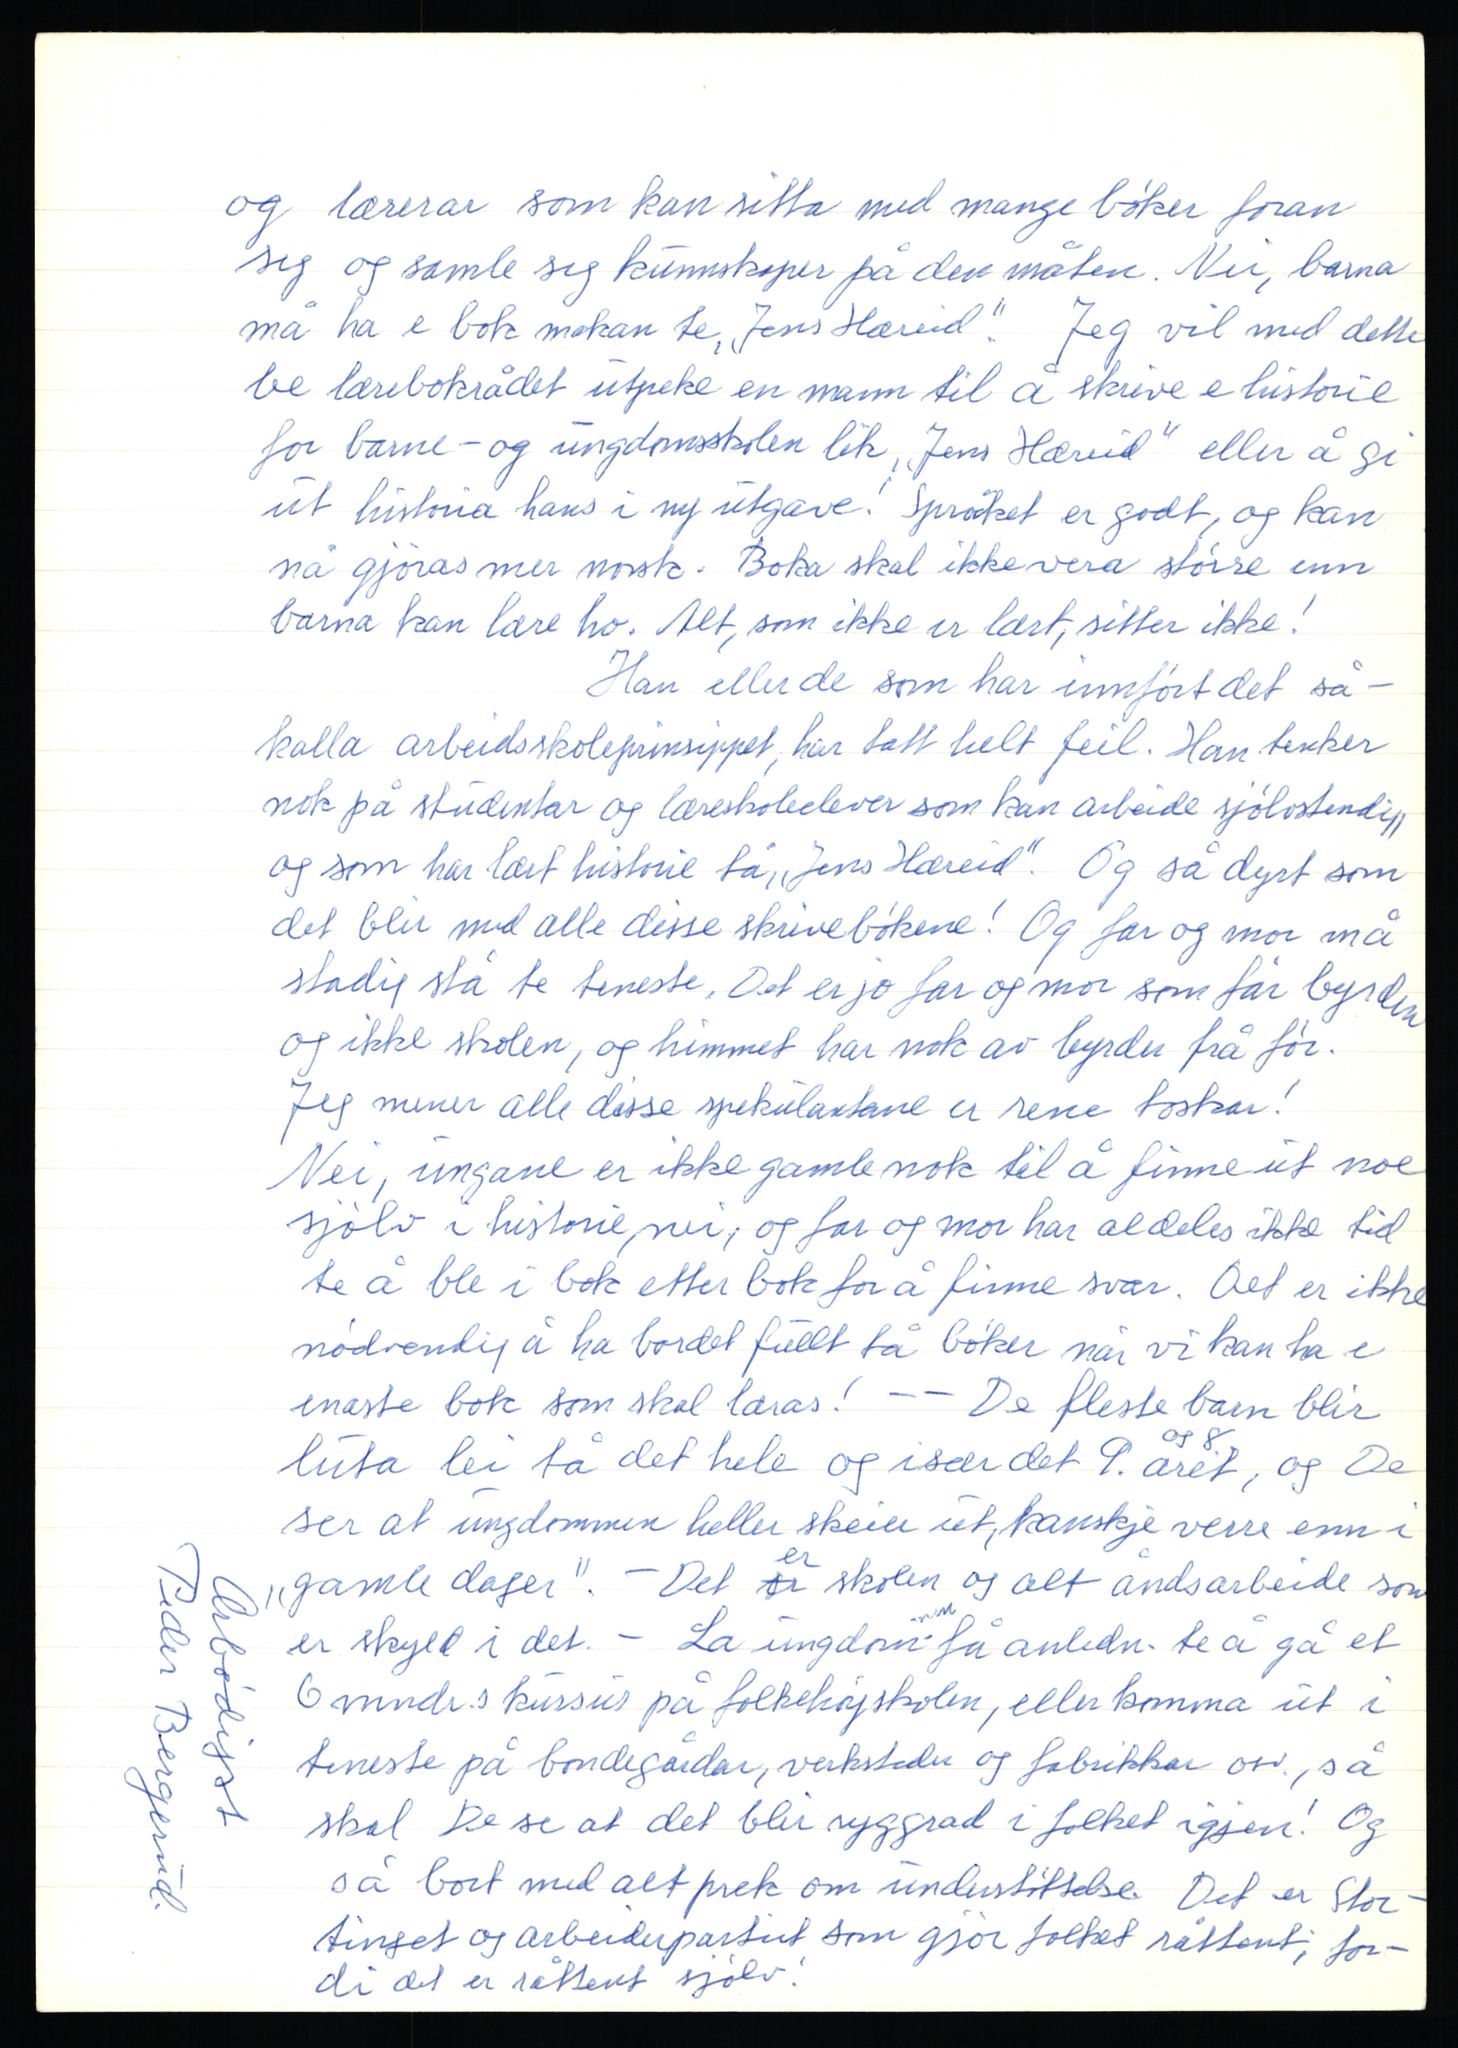 og lærerar som kan sitta med mange bøker foran
seg og samle seg kunnskaper på den måten. Nei, barna
må ha e bok makan te „Jens Hæreid". Jeg vil med dette
be lærebokrådet utpeke en mann til å skrive e historie
for barne- og ungdomsskolen lik „Jens Hæreid" eller å gi
ut historia hans i ny utgave! Språket er godt, og kan
nå gjøras mer norsk. Boka skal ikke vera større enn
barna kan lære ho. Alt, som ikke er lært, sitter ikke!
Han eller de som har innført det så-
kalla arbeidsskoleprinsippet, har tatt helt feil. Han tenker
nok på studentar og læreskoleelever som kan arbeide sjølvstendig
og som har lært historie tå „Jens Hæreid". Og så dyrt som
det blir med alle disse skrivebøkene! Og far og mor må
stadig stå te teneste. Det er jo far og mor som får byrden
og ikke skolen, og himmet har nok av byrder frå før.
Jeg mener alle disse spekulantane er rene toskar!
Nei, ungane er ikke gamle nok til å finne ut noe
sjølv i historie, nei, og far og mor har aldeles ikke tid
te å ble i bok etter bok for å finne svar. Det er ikke
nødvendig å ha bordet fullt tå bøker når vi kan ha e
enaste bok som skal læras! -- De fleste barn blir
luta lei tå det hele og især det 9. og 8. året, og De
ser at ungdommen heller skeier ut, kanskje verre enn i
„gamle dager". - Det er skolen og alt åndsarbeide som
er skyld i det. - La ungdommen få anledn. te å gå et
6 mndr.s kursus på folkehøjskolen, eller komma ut i
teneste på bondegårdar, verksteder og fabrikkar osv., så
skal De se at det blir ryggrad i folket igjen! Og
så bort med alt prek om understøttelse. Det er Stor-
tinget og arbeiderpartiet som gjør folket råttent, for-
di det er råttent sjølv!
Ærbødigst
Peder Bergerud.